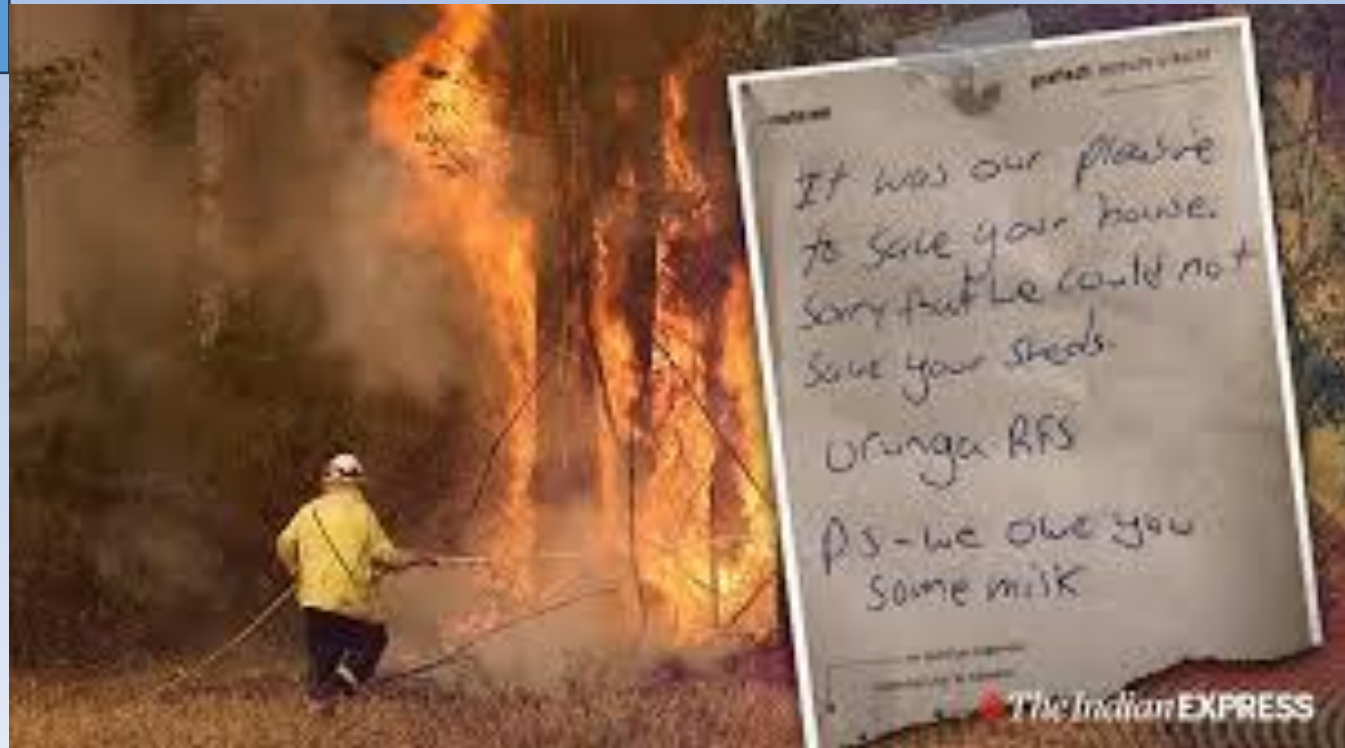 It was our pleasure
to save your house.
Sorry that we could not
save your sheds.
Urunga RFS
PS - we owe you
some milk
The Indian EXPRESS